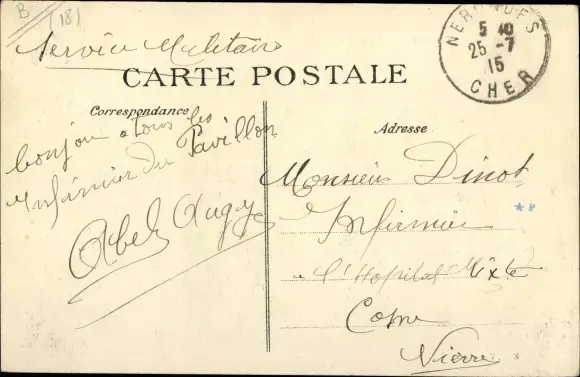 B (18)
Service Militaire
NERONDES
5 40
25 - 7
15
CHER
CARTE POSTALE
Correspondance
Adresse
bonjour a tous les
Infirmier du Pavillon
Abel Augy
Monsieur Dinot
Infirmier
a l'Hopital Mixte
Cosne
Nievre
* 8